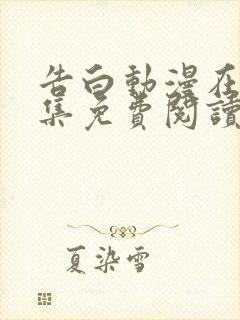 告白動漫在
集免費閱讀
夏染雪